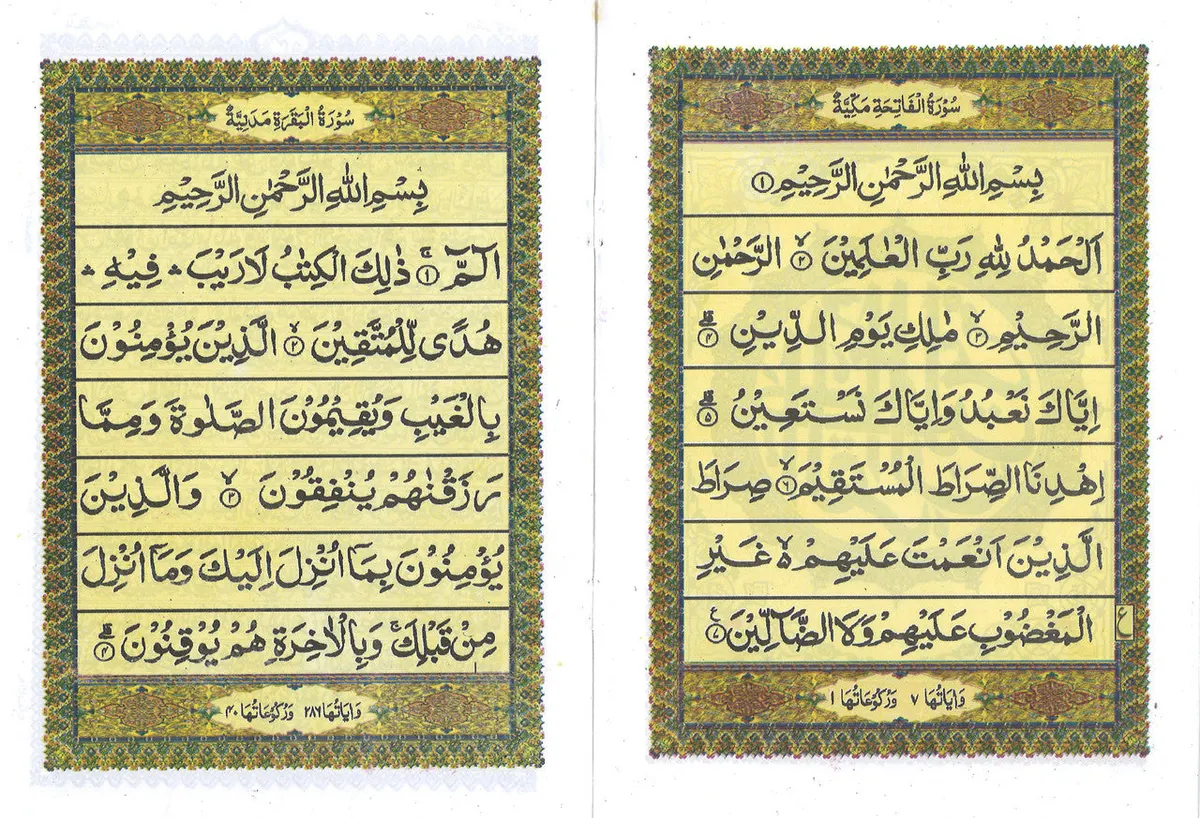 سُوْرَةُ الْفَاتِحَةِ مَكِّيَّةٌ
بِسْمِ اللهِ الرَّحْمٰنِ الرَّحِيْمِ ۝١
اَلْحَمْدُ لِلّٰهِ رَبِّ الْعٰلَمِيْنَ ۙ۝٢ الرَّحْمٰنِ
الرَّحِيْمِ ۙ۝٣ مٰلِكِ يَوْمِ الدِّيْنِ ۗ۝٤
اِيَّاكَ نَعْبُدُ وَاِيَّاكَ نَسْتَعِيْنُ ۗ۝٥
اِهْدِنَا الصِّرَاطَ الْمُسْتَقِيْمَ ۙ۝٦ صِرَاطَ
الَّذِيْنَ اَنْعَمْتَ عَلَيْهِمْ ەۙ غَيْرِ
الْمَغْضُوْبِ عَلَيْهِمْ وَلَا الضَّاۤلِّيْنَ ۝٧
ع
وَاٰيَاتُهَا ٧ وَرُكُوْعَاتُهَا ١
سُوْرَةُ الْبَقَرَةِ مَدَنِيَّةٌ
بِسْمِ اللهِ الرَّحْمٰنِ الرَّحِيْمِ
الۤمّۤ ۚ۝١ ذٰلِكَ الْكِتٰبُ لَا رَيْبَ ۛ فِيْهِ ۛ
هُدًى لِّلْمُتَّقِيْنَ ۙ۝٢ الَّذِيْنَ يُؤْمِنُوْنَ
بِالْغَيْبِ وَيُقِيْمُوْنَ الصَّلٰوةَ وَمِمَّا
رَزَقْنٰهُمْ يُنْفِقُوْنَ ۙ۝٣ وَالَّذِيْنَ
يُؤْمِنُوْنَ بِمَاۤ اُنْزِلَ اِلَيْكَ وَمَاۤ اُنْزِلَ
مِنْ قَبْلِكَ ۚ وَبِالْاٰخِرَةِ هُمْ يُوْقِنُوْنَ ۗ۝٤
وَاٰيَاتُهَا ٢٨٦ وَرُكُوْعَاتُهَا ٤٠